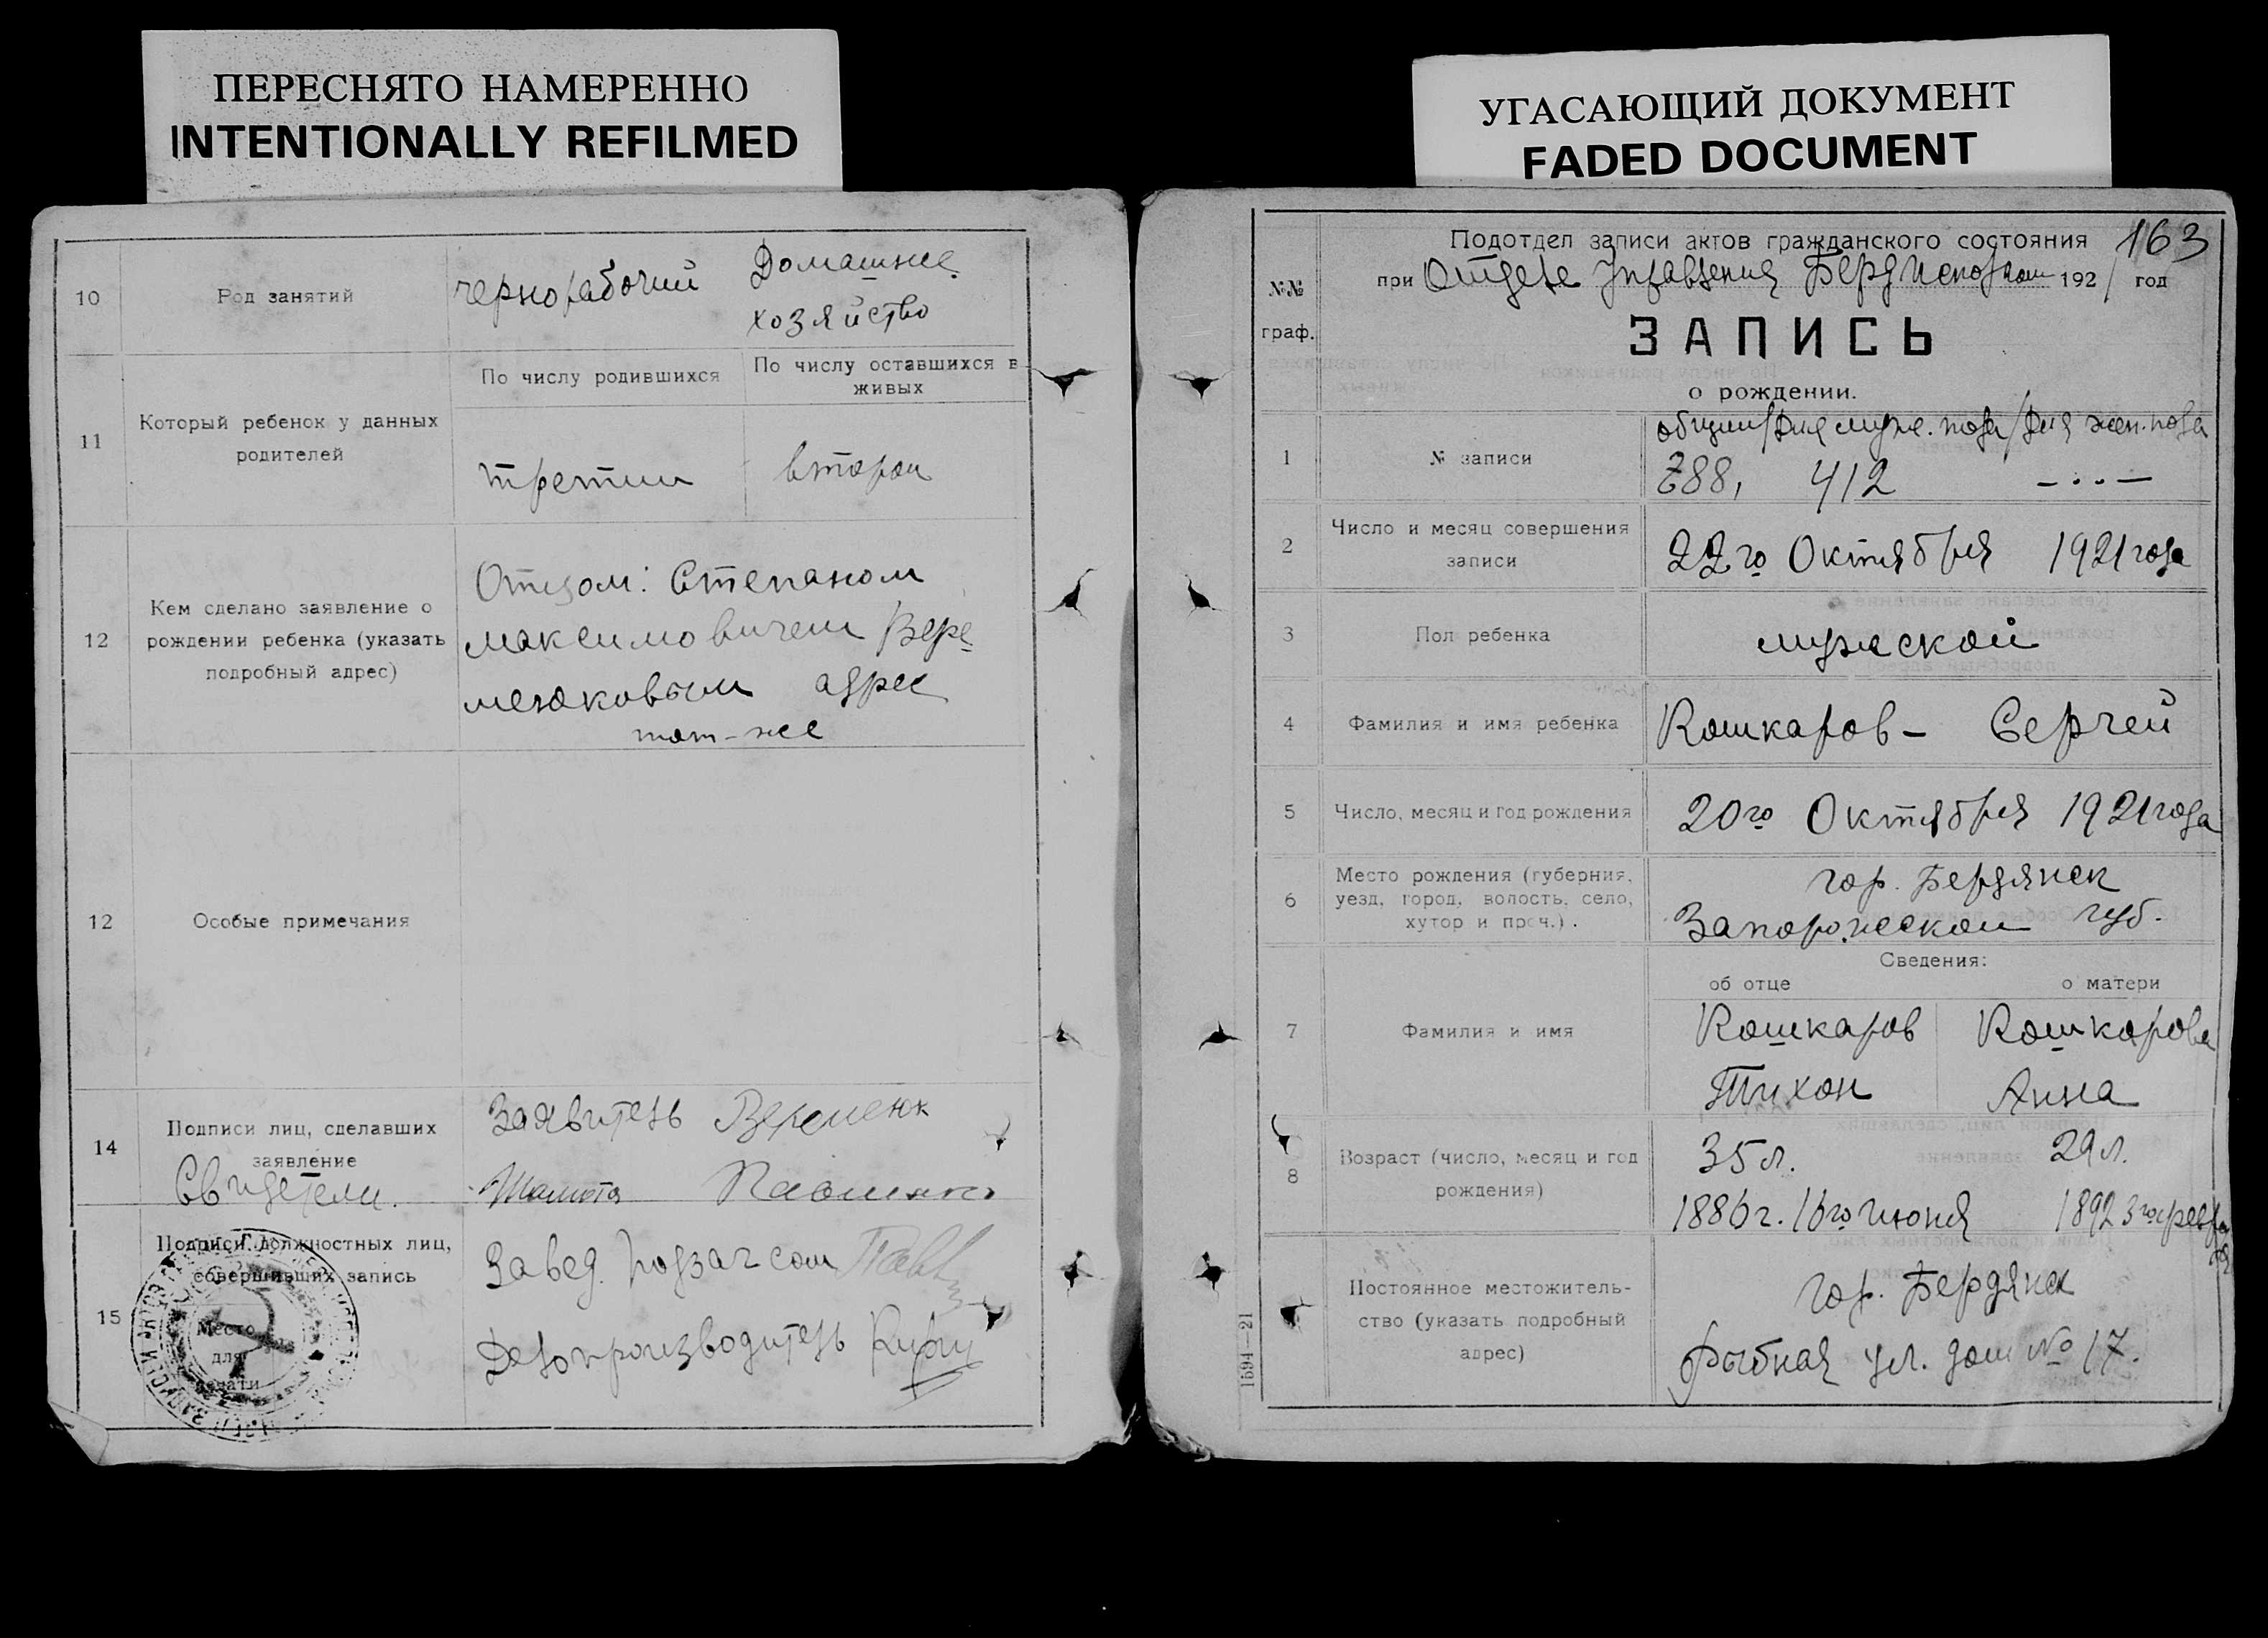 ПЕРЕСНЯТО НАМЕРЕННО
INTENTIONALLY REFILMED
10
Род занятий
чернорабочий
Домашнее
хозяйство
11
Который ребенок у данных
родителей
По числу родившихся
По числу оставшихся в
живых
третий
второй
12
Кем сделано заявление о
рождении ребенка (указать
подробный адрес)
Отцом: Степаном
Максимовичем Вере-
менюковым адрес
тот-же
12
Особые примечания
14
Подписи лиц, сделавших
заявление
Свидетели.
Заявитель Веременюк
15
Подписи должностных лиц,
совершивших запись
Место
для
печати
Завед. подзагсом
Делопроизводитель
УГАСАЮЩИЙ ДОКУМЕНТ
FADED DOCUMENT
163
№№
граф.
Подотдел записи актов гражданского состояния
при Отделе Управления 1921 год
ЗАПИСЬ
о рождении.
1
№ записи
общий/для муж. пола/для жен. пола
788, 412 —··—
2
Число и месяц совершения
записи
22го Октября 1921 года
3
Пол ребенка
мужской
4
Фамилия и имя ребенка
Кошкаров - Сергей
5
Число, месяц и год рождения
20го Октября 1921 года
6
Место рождения (губерния,
уезд, город, волость, село,
хутор и проч.).
гор. Бердянск
Запорожской губ.
Сведения:
об отце
о матери
7
Фамилия и имя
Кошкаров
Тихон
Кошкарова
Анна
8
Возраст (число, месяц и год
рождения)
35 л.
29 л.
1886 г. 16го июня
1892 3го февраля
Постоянное местожитель-
ство (указать подробный
адрес)
гор. Бердянск
Рыбная ул. дом № 17.
1594—21